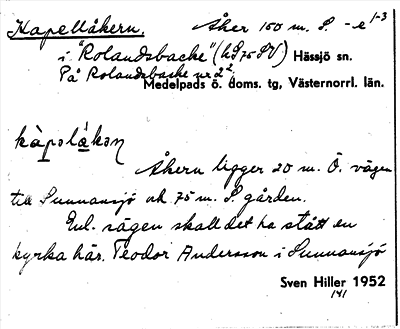 Kapellåkern. Åker 150 m. S. -e 1-3
i "Rolandsbacke" (bS75SV) Hässjö sn.
På Rolandsbacke nr 2²
Medelpads ö. doms. tg, Västernorrl. län.
kàpälåkən
Åkern ligger 20 m. Ö. vägen
till Sunnansjö och 75 m. S. gården.
Enl. sägen skall det ha stått en
kyrka här. Teodor Andersson i Sunnansjö
Sven Hiller 1952
141